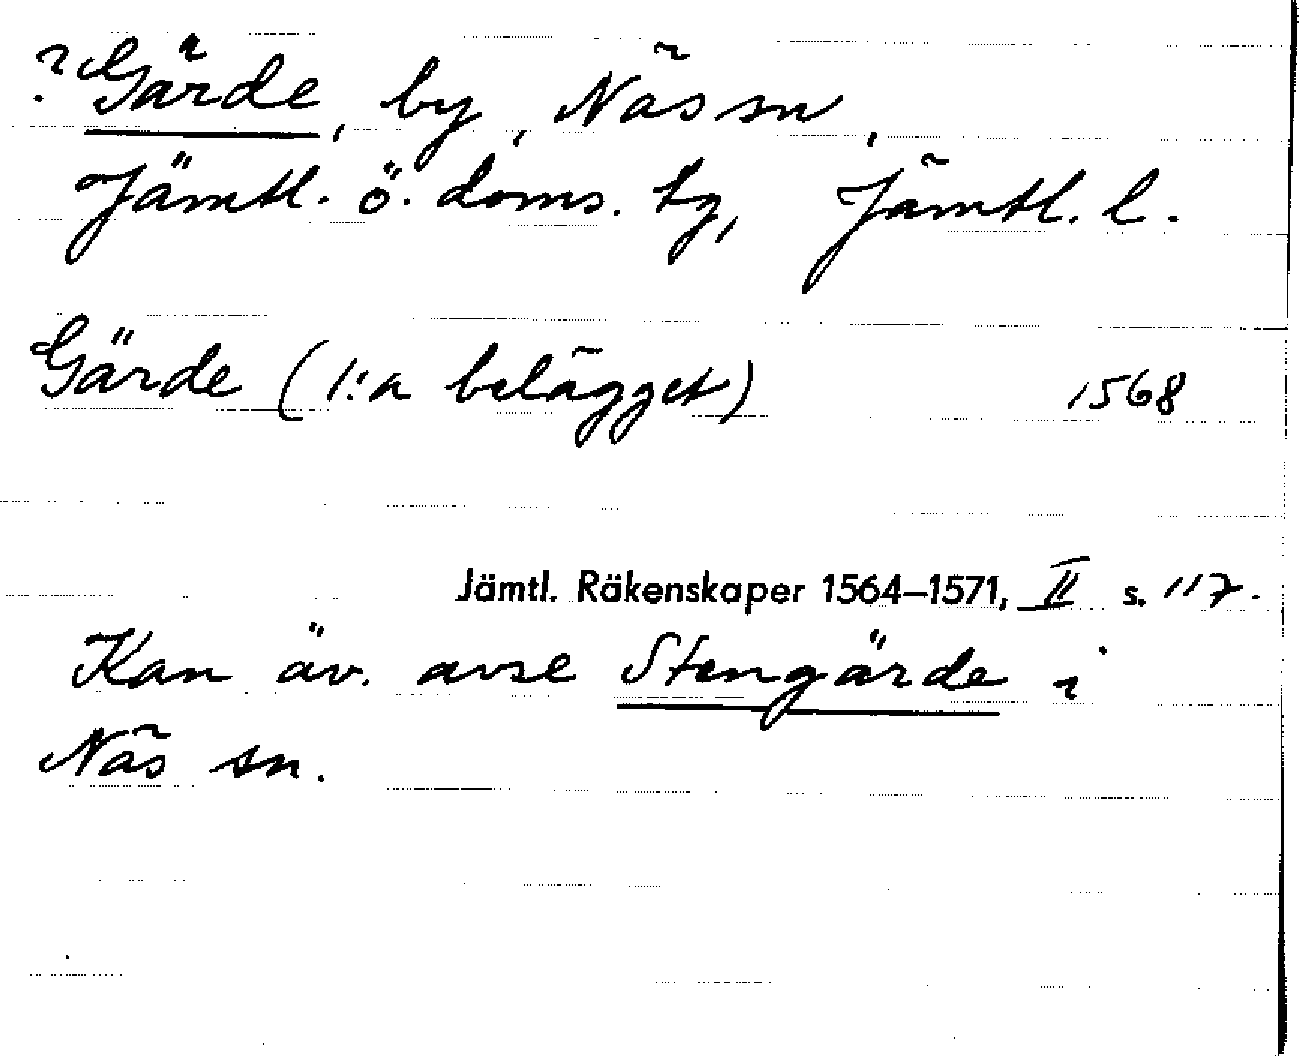 ? Gärde, by, Näs sn,
Jämtl. ö. doms. tg, Jämtl. l.
Gärde (1:a belägget) 1568
Jämtl. Räkenskaper 1564–1571, II s. 117.
Kan äv. avse Stengärde i
Näs sn.